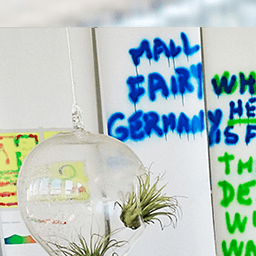 MALL
FAIRY
GERMANY
WH
HE
IS F
TH
DE
W
WA